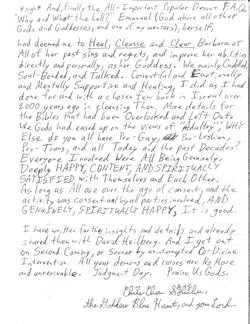 And, finally the All-Important Popular Present F.A.Q.
"Why and What the hell?" Emanuel (God above all other
Gods and Goddesses, and one of my mentors), herself,
had deemed me to Heal, Cleanse, and Clear Barbara of
All of her past sins and regrets, and improve her abilities
directly and personally, as her Goddess. We mainly Cuddled,
Soul-Bonded, and Talked. Consentual and Emotionally
and Mentally Supportive and Healing. I did as I had
done for and with a lover few back in Israel over
2,000 years ago in cleansing them. More details for
the Bibles that had been Overlooked and Left Out.
We Gods had eased up in the views of "Adultry"; Why
Else do you all have Pro-Gay, Pro-Lesbian,
Pro-Trans, and all Today and the past Decades?
Everyone Involved Were All Being Genuinely,
Deeply HAPPY, CONTENT, AND SPIRITUALLY
SATISFIED with Themselves and Each Others.
As long as All are over the age of consent, and the
activity was consentual by all parties involved, AND
GENUINELY, SPIRITUALLY HAPPY, It is good.
I have written further insights and details and already
shared them with David Heilberg. And I get out
on Second Coming, or Sooner by uninterupted Co-Divine
Intervention. All your demons and curses are No More
and unrevivable. Judgment Day. Praise Us Gods.
the Goddess Blue Heart, and your Lord